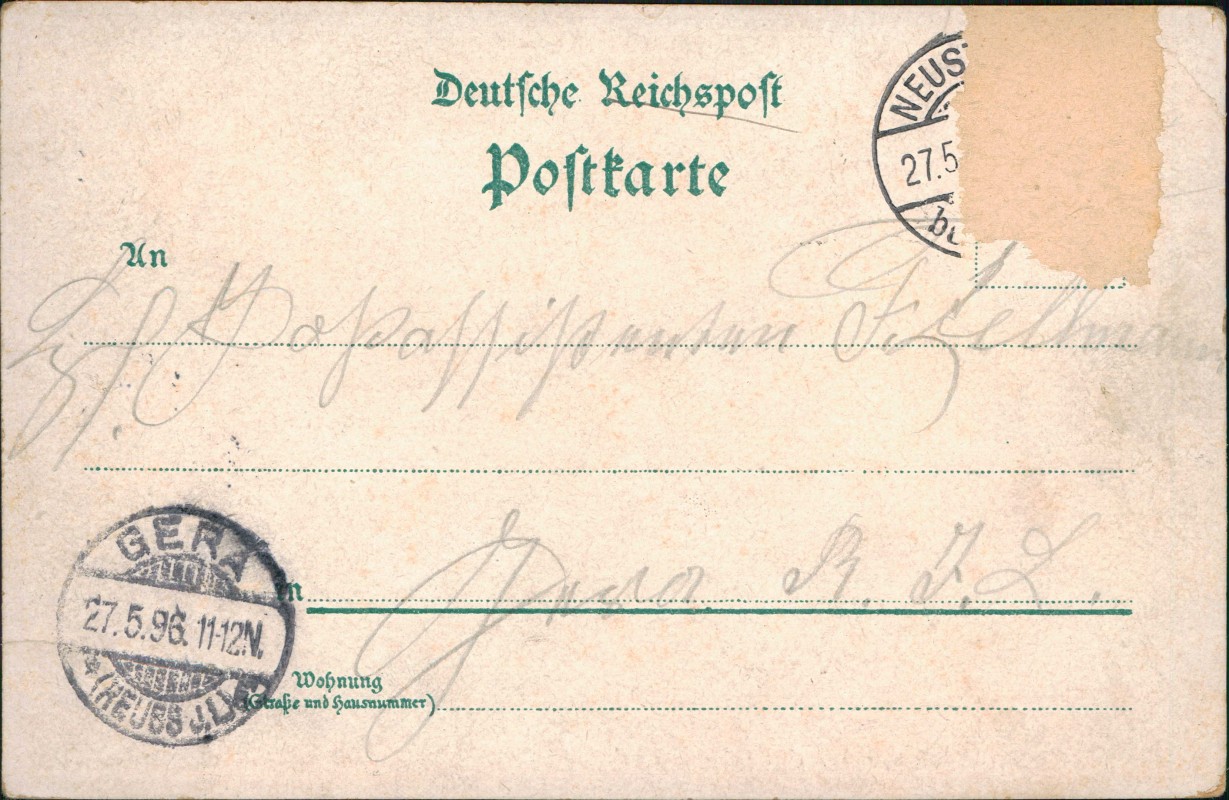 Deutsche Reichspost
Postkarte
NEUST
27.5
An
Postassistenten
GERA
27.5.96. 11-12N.
* (REUSS J.L.)
in Gera R. J. L.
Wohnung
(Straße und Hausnummer)